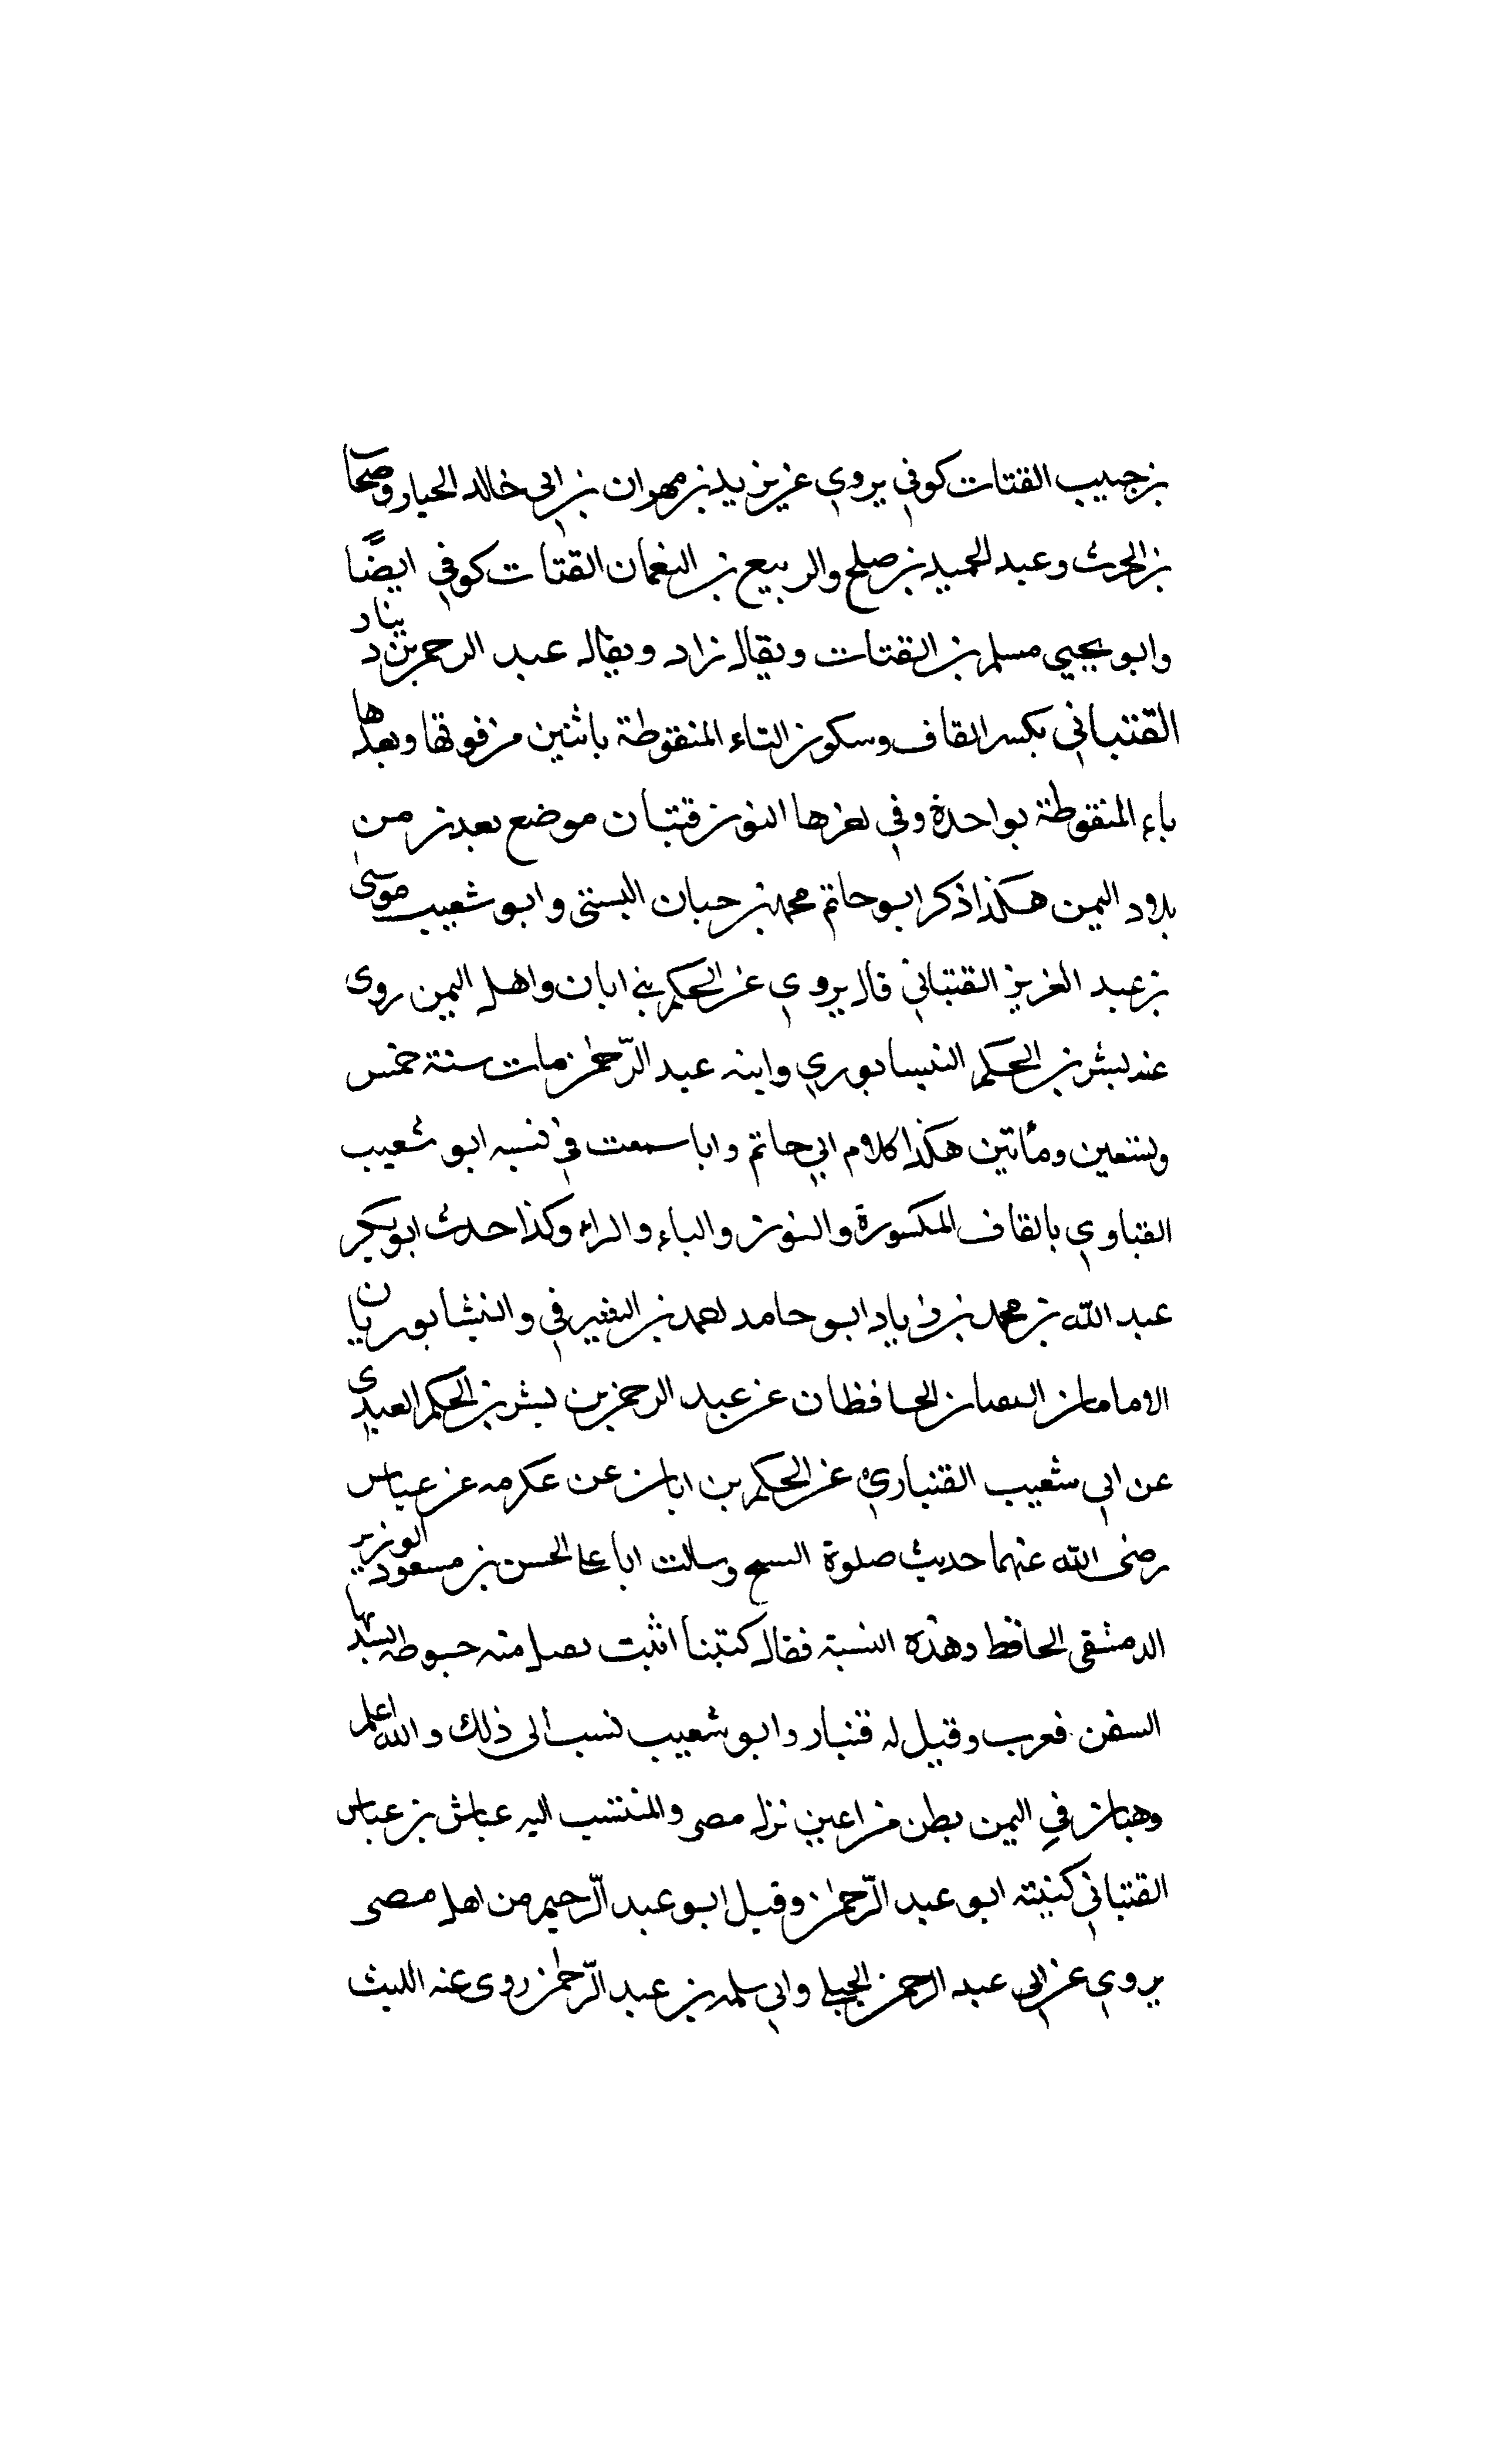 بن حبيب القتات كوفي يروي عن يزيد بن مهران بن ابي خالد الخباز وصحا
بن الحرث وعبد الحميد بن صلح والربيع بن النعمان القتات كوفي ايضًا
وابو يحيى مسلم بن القتات ويقال زاد ويقال عبد الرحمن بن دينار
القتباني بكسر القاف وسكون التاء المنقوطة باثنين من فوقها وبعدها
باء المنقوطة بواحدة وفي اخرها النون قتبان موضع بعدن من
بلاد اليمن هكذا ذكر ابو حاتم محمد بن حبان البستي وابو شعيب موسى
بن عبد العزيز القتباني قال يروي عن الحكم بن ابان واهل اليمن روى
عنه بشر بن الحكم النيسابوري وابنه عبد الرّحمٰن مات سنة خمس
وسبعين ومأتين هكذا كلام ابي حاتم وانا سمعت في نسبه ابو شعيب
القناوي بالقاف المكسورة والنون والباء والراء وكذا حدث ابو بكر
عبد الله بن محمد بن زياد ابو حامد احمد بن الفقير في والنيشابوريان
الامامان الحافظان عن عبد الرحمن بن بشر بن الحكم العبدي
عن ابي شعيب القنباري عن الحكم بن ابان عن عكرمه عن عباس
رضى الله عنهما حديث صلوة التسبيح وسالت ابا علي الحسن بن مسعود الوزير
الدمشقي الحافظ وهذه النسبة فقال كتبنا اثبت منه
السفن فعرب وقيل له قنبار وابو شعيب نسب الى ذلك والله اعلم
في اليمن بطن من راعين نزل مصر والمنتسب اليه عباش بن عباس
القتباني كنيته ابو عبد الرّحمٰن وقيل ابو عبد الرّحيم من اهل مصر
يروي عن ابي عبد الرحمن الجبلي وابي سلمه بن عبد الرّحمٰن روى عنه الليث